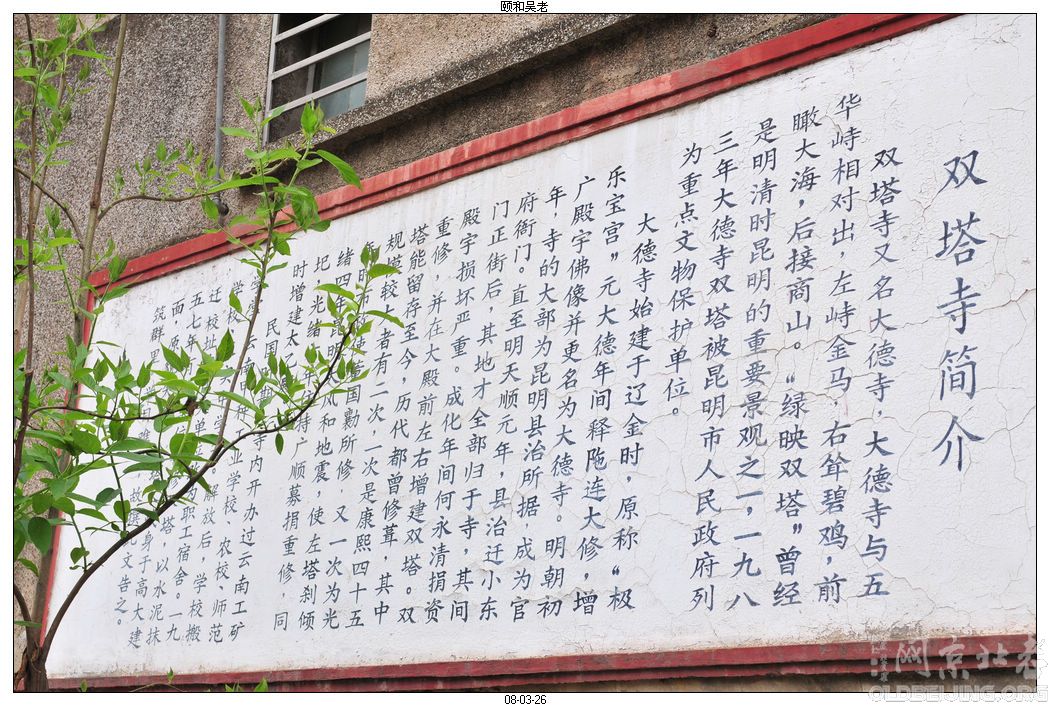 颐和吴老
双塔寺简介
双塔寺又名大德寺，大德寺与五
华峙相对出，左峙金马，右耸碧鸡，前
瞰大海，后接商山。“绿映双塔”曾经
是明清时昆明的重要景观之一，一九八
三年大德寺双塔被昆明市人民政府列
为重点文物保护单位。
大德寺始建于辽金时，原称“极
乐宝宫”元大德年间释陁连大修，增
广殿宇佛像并更名为大德寺。明朝初
年，寺的大部为昆明县治所据，成为官
府衙门。直至明天顺元年，县治迁小东
门正街后，其地才全部归于寺，其间
殿宇损坏严重。成化年间何永清捐资
重修，并在大殿前左右增建双塔。双
塔能留存至今，历代都曾修葺，其中
规模较大者有二次，一次是康熙四十五
年 国勷所修，又一次为光
绪四年昆明 风和地震，使左塔刹倾
圮，光绪 持广顺募捐重修，同
时增建太
民国 寺内开办过云南工矿
学校、 工业学校、农校、师范
学校 解放后，学校搬
迁校址 为职工宿舍。一九
五七年 单 塔，以水泥抹
面，原 身于高大建
筑群里 故 文告之。
08-03-26
老北京网
OLDBEIJING.ORG